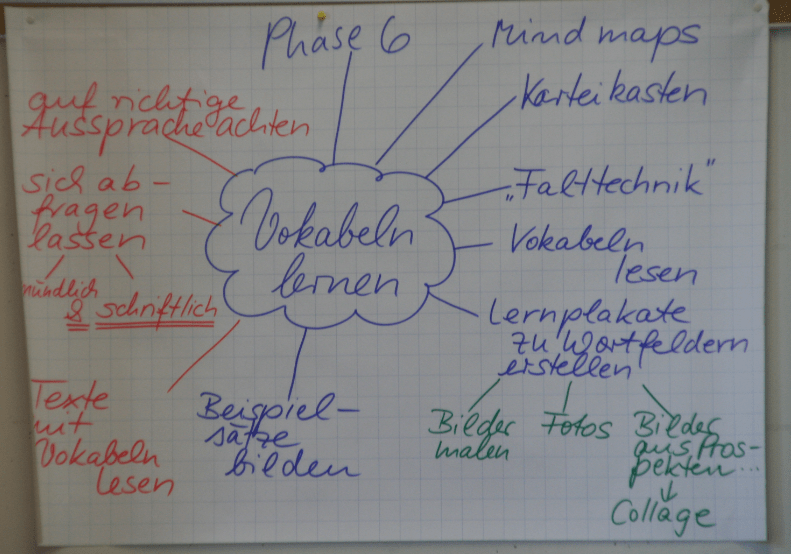 Phase 6
Mind maps
Karteikasten
„Falttechnik"
Vokabeln
lesen
Lernplakate
zu Wortfeldern
erstellen
Bilder
malen
Fotos
Bilder
aus Pros-
pekten...
Collage
Vokabeln
lernen
Beispiel-
sätze
bilden
auf richtige
Aussprache achten
sich ab-
fragen
lassen
mündlich
& schriftlich
Texte
mit
Vokabeln
lesen